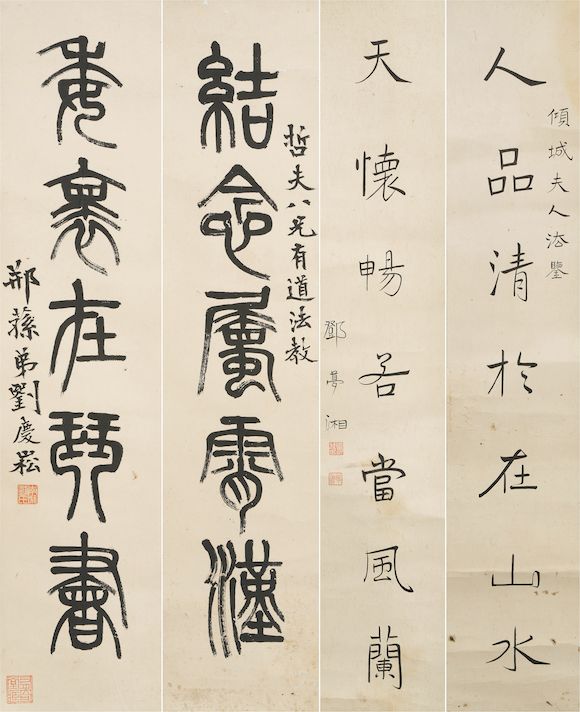 人品清於在山水
傾城夫人法鑒
天懷暢若當風蘭
鄧夢湘
結念屬霄漢
哲夫八兄有道法教
委褱在琴書
郱蓀弟劉慶崧